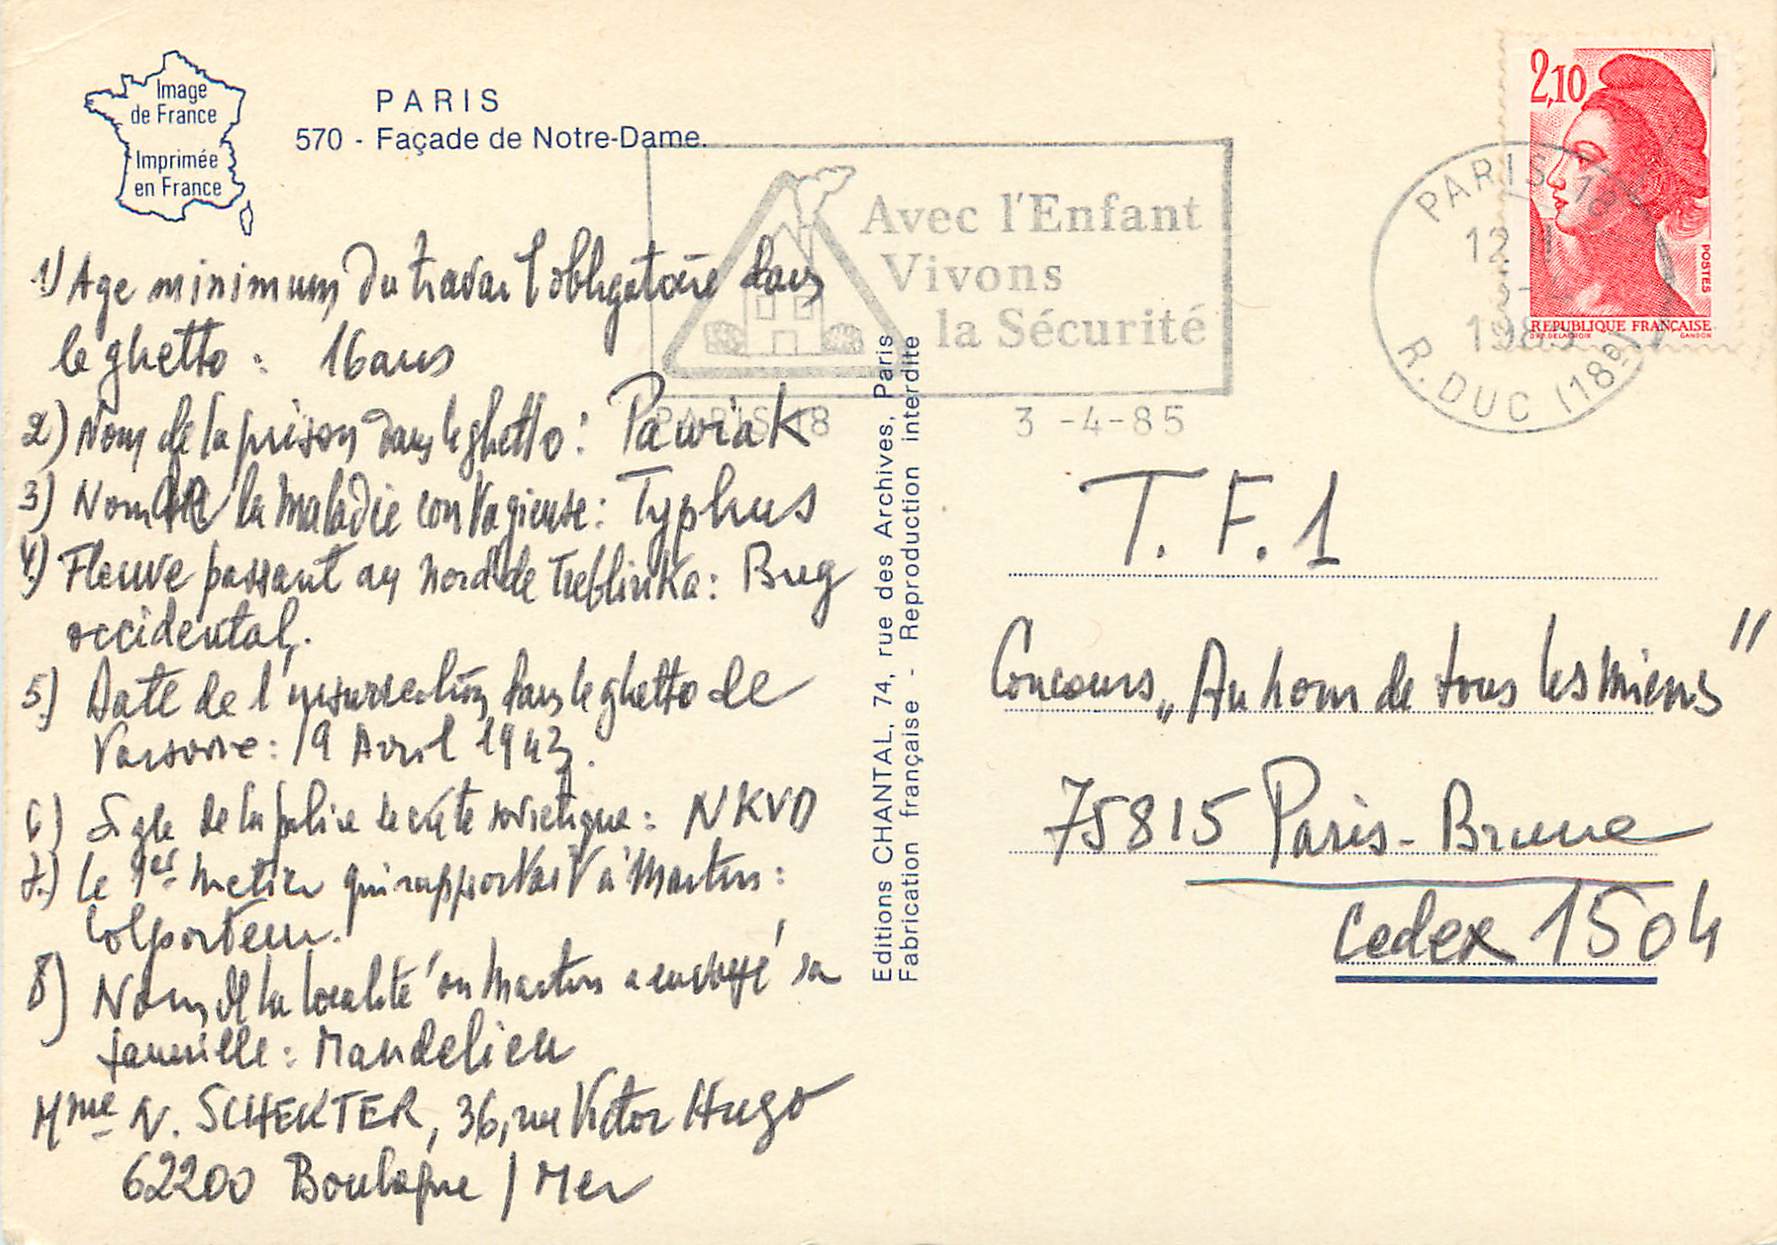 Image
de France
Imprimée
en France
PARIS
570 - Façade de Notre-Dame.
Avec l'Enfant
Vivons
la Sécurité
PARIS 18
3 -4-85
PARIS 18
12 H
3-4
1985
R. DUC (18e)
2,10
POSTES
REPUBLIQUE FRANÇAISE
1) Age minimum du travail obligatoire dans
le ghetto : 16 ans
2) Nom de la prison dans le ghetto : Pawiak
3) Nom de la maladie contagieuse : Typhus
4) Fleuve passant au nord de Treblinka : Bug
occidental.
5) Date de l'insurrection dans le ghetto de
Varsovie : 19 Avril 1943.
6) Sigle de la police secrète soviétique : NKVD
7.) Le 1er métier qui rapportait à Martin :
Colporteur.
8) Nom de la localité où Martin a envoyé sa
famille : Mandelieu
Mme N. SCHEKTER, 36, rue Victor Hugo
62200 Boulogne / Mer
Editions CHANTAL, 74, rue des Archives, Paris
Fabrication française - Reproduction interdite
T. F. 1
Concours „Au nom de tous les miens"
75815 Paris - Brune
Cedex 1504